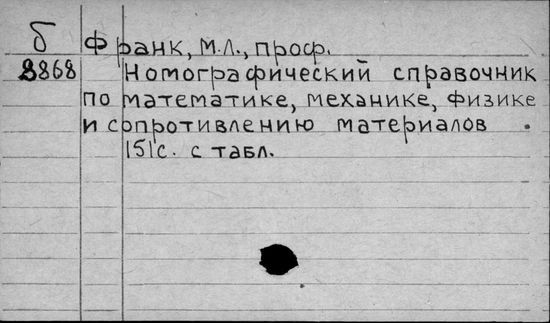 б
8868
Франк, М.Л., проф.
Номографический справочник
по математике, механике, физике
и сопротивлению материалов.
151с. с табл.